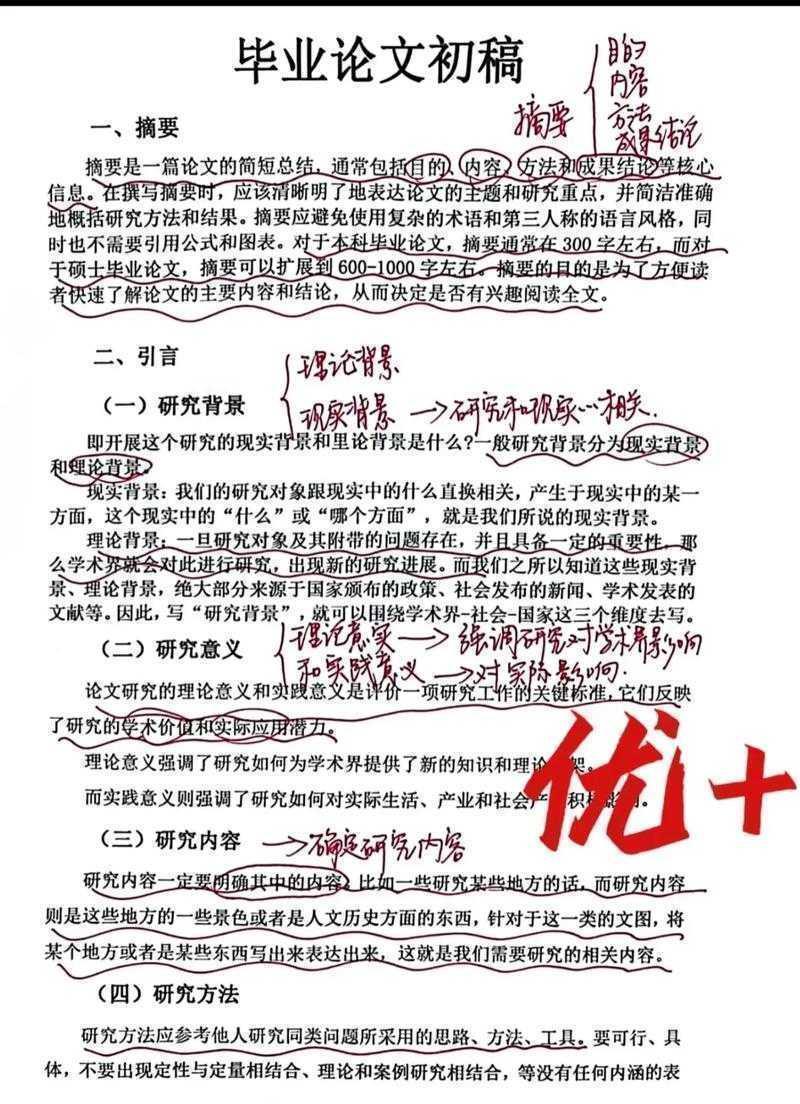 毕业论文初稿
目的
内容
方法
成果结论
摘要
一、摘要
摘要是一篇论文的简短总结，通常包括目的、内容、方法和成果结论等核心
信息。在撰写摘要时，应该清晰明了地表达论文的主题和研究重点，并简洁准确
地概括研究方法和结果。摘要应避免使用复杂的术语和第三人称的语言风格，同
时也不需要引用公式和图表。对于本科毕业论文，摘要通常在 300 字左右，而对
于硕士毕业论文，摘要可以扩展到 600-1000 字左右。摘要的目的是为了方便读
者快速了解论文的主要内容和结论，从而决定是否有兴趣阅读全文。
二、引言
理论背景
（一）研究背景
现实背景→研究和现实…相关.
即开展这个研究的现实背景和里论背景是什么?一般研究背景分为现实背景
和理论背景。
现实背景：我们的研究对象跟现实中的什么直换相关，产生于现实中的某一
方面，这个现实中的“什么”或“哪个方面”，就是我们所说的现实背景。
理论背景：一旦研究对象及其附带的问题存在，并且具备一定的重要性，那
么学术界就会对此进行研究，出现新的研究进展。而我们之所以知道这些现实背
景、理论背景，绝大部分来源于国家颁布的政策、社会发布的新闻、学术发表的
文献等。因此，写“研究背景”，就可以围绕学术界-社会-国家这三个维度去写。
（二）研究意义
理论意实→强调研究对学术界影响
和实践意义→对实际影响.
论文研究的理论意义和实践意义是评价一项研究工作的关键标准，它们反映
了研究的学术价值和实际应用潜力。
理论意义强调了研究如何为学术界提供了新的知识和理论 架。
而实践意义则强调了研究如何对实际生活、产业和社会产 积 影 。
优+
（三）研究内容
→确定研究内容
研究内容一定要明确其中的内容，比如一些研究某些地方的话，而研究内容
则是这些地方的一些景色或者是人文历史方面的东西，针对于这一类的文图，将
某个地方或者是某些东西写出来表达出来，这就是我们需要研究的相关内容。
（四）研究方法
研究方法应参考他人研究同类问题所采用的思路、方法、工具。要可行、具
体，不要出现定性与定量相结合、理论和案例研究相结合，等没有任何内涵的表